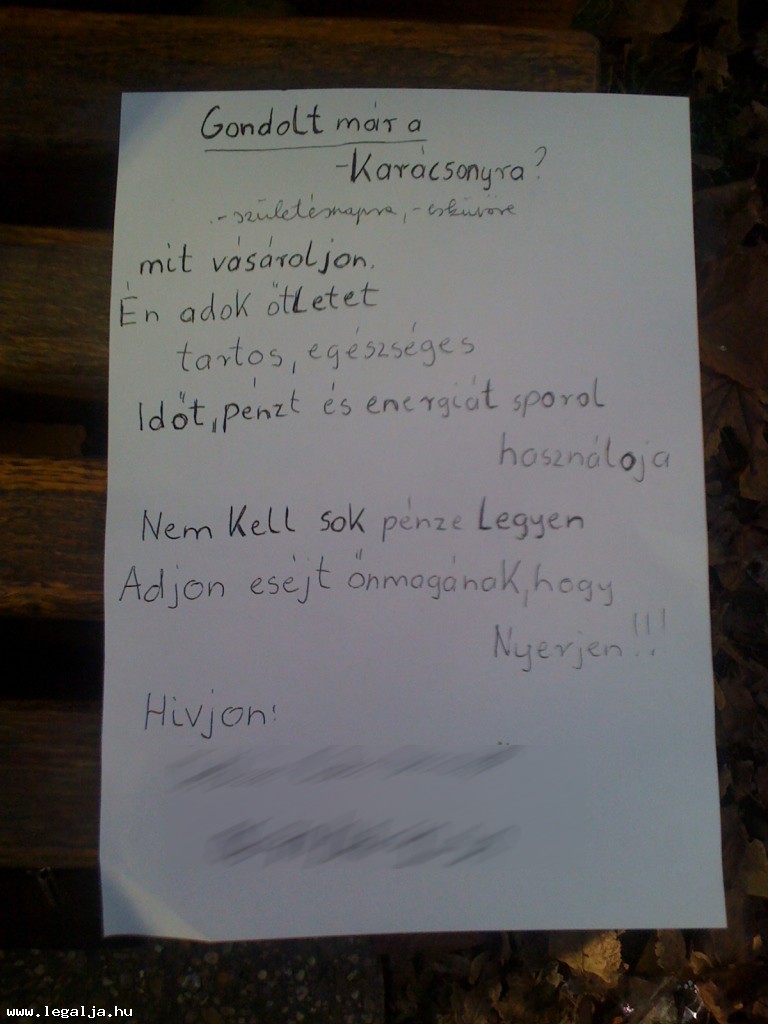 Gondolt már a
-Karácsonyra?
-születésnapra, -esküvőre
mit vásároljon.
Én adok ötLetet
tartos, egészséges
Időt, pénzt és energiát sporol
használoja
Nem Kell sok pénze Legyen
Adjon eséjt őnmagának, hogy
Nyerjen!!!
Hivjon!
www.legalja.hu